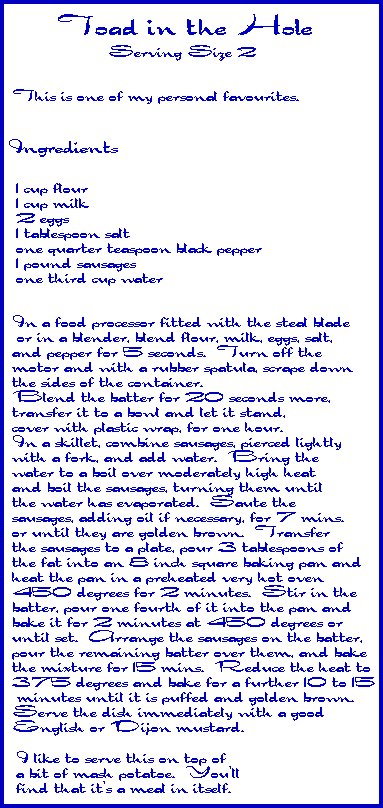 Toad in the Hole
Serving Size 2
This is one of my personal favourites.
Ingredients
1 cup flour
1 cup milk
2 eggs
1 tablespoon salt
one quarter teaspoon black pepper
1 pound sausages
one third cup water
In a food processor fitted with the steal blade
or in a blender, blend flour, milk, eggs, salt,
and pepper for 5 seconds. Turn off the
motor and with a rubber spatula, scrape down
the sides of the container.
Blend the batter for 20 seconds more,
transfer it to a bowl and let it stand,
cover with plastic wrap, for one hour.
In a skillet, combine sausages, pierced lightly
with a fork, and add water. Bring the
water to a boil over moderately high heat
and boil the sausages, turning them until
the water has evaporated. Saute the
sausages, adding oil if necessary, for 7 mins.
or until they are golden brown. Transfer
the sausages to a plate, pour 3 tablespoons of
the fat into an 8 inch square baking pan and
heat the pan in a preheated very hot oven
450 degrees for 2 minutes. Stir in the
batter, pour one fourth of it into the pan and
bake it for 2 minutes at 450 degrees or
until set. Arrange the sausages on the batter,
pour the remaining batter over them, and bake
the mixture for 15 mins. Reduce the heat to
375 degrees and bake for a further 10 to 15
minutes until it is puffed and golden brown.
Serve the dish immediately with a good
English or Dijon mustard.
I like to serve this on top of
a bit of mash potatoe. You'll
find that it's a meal in itself.